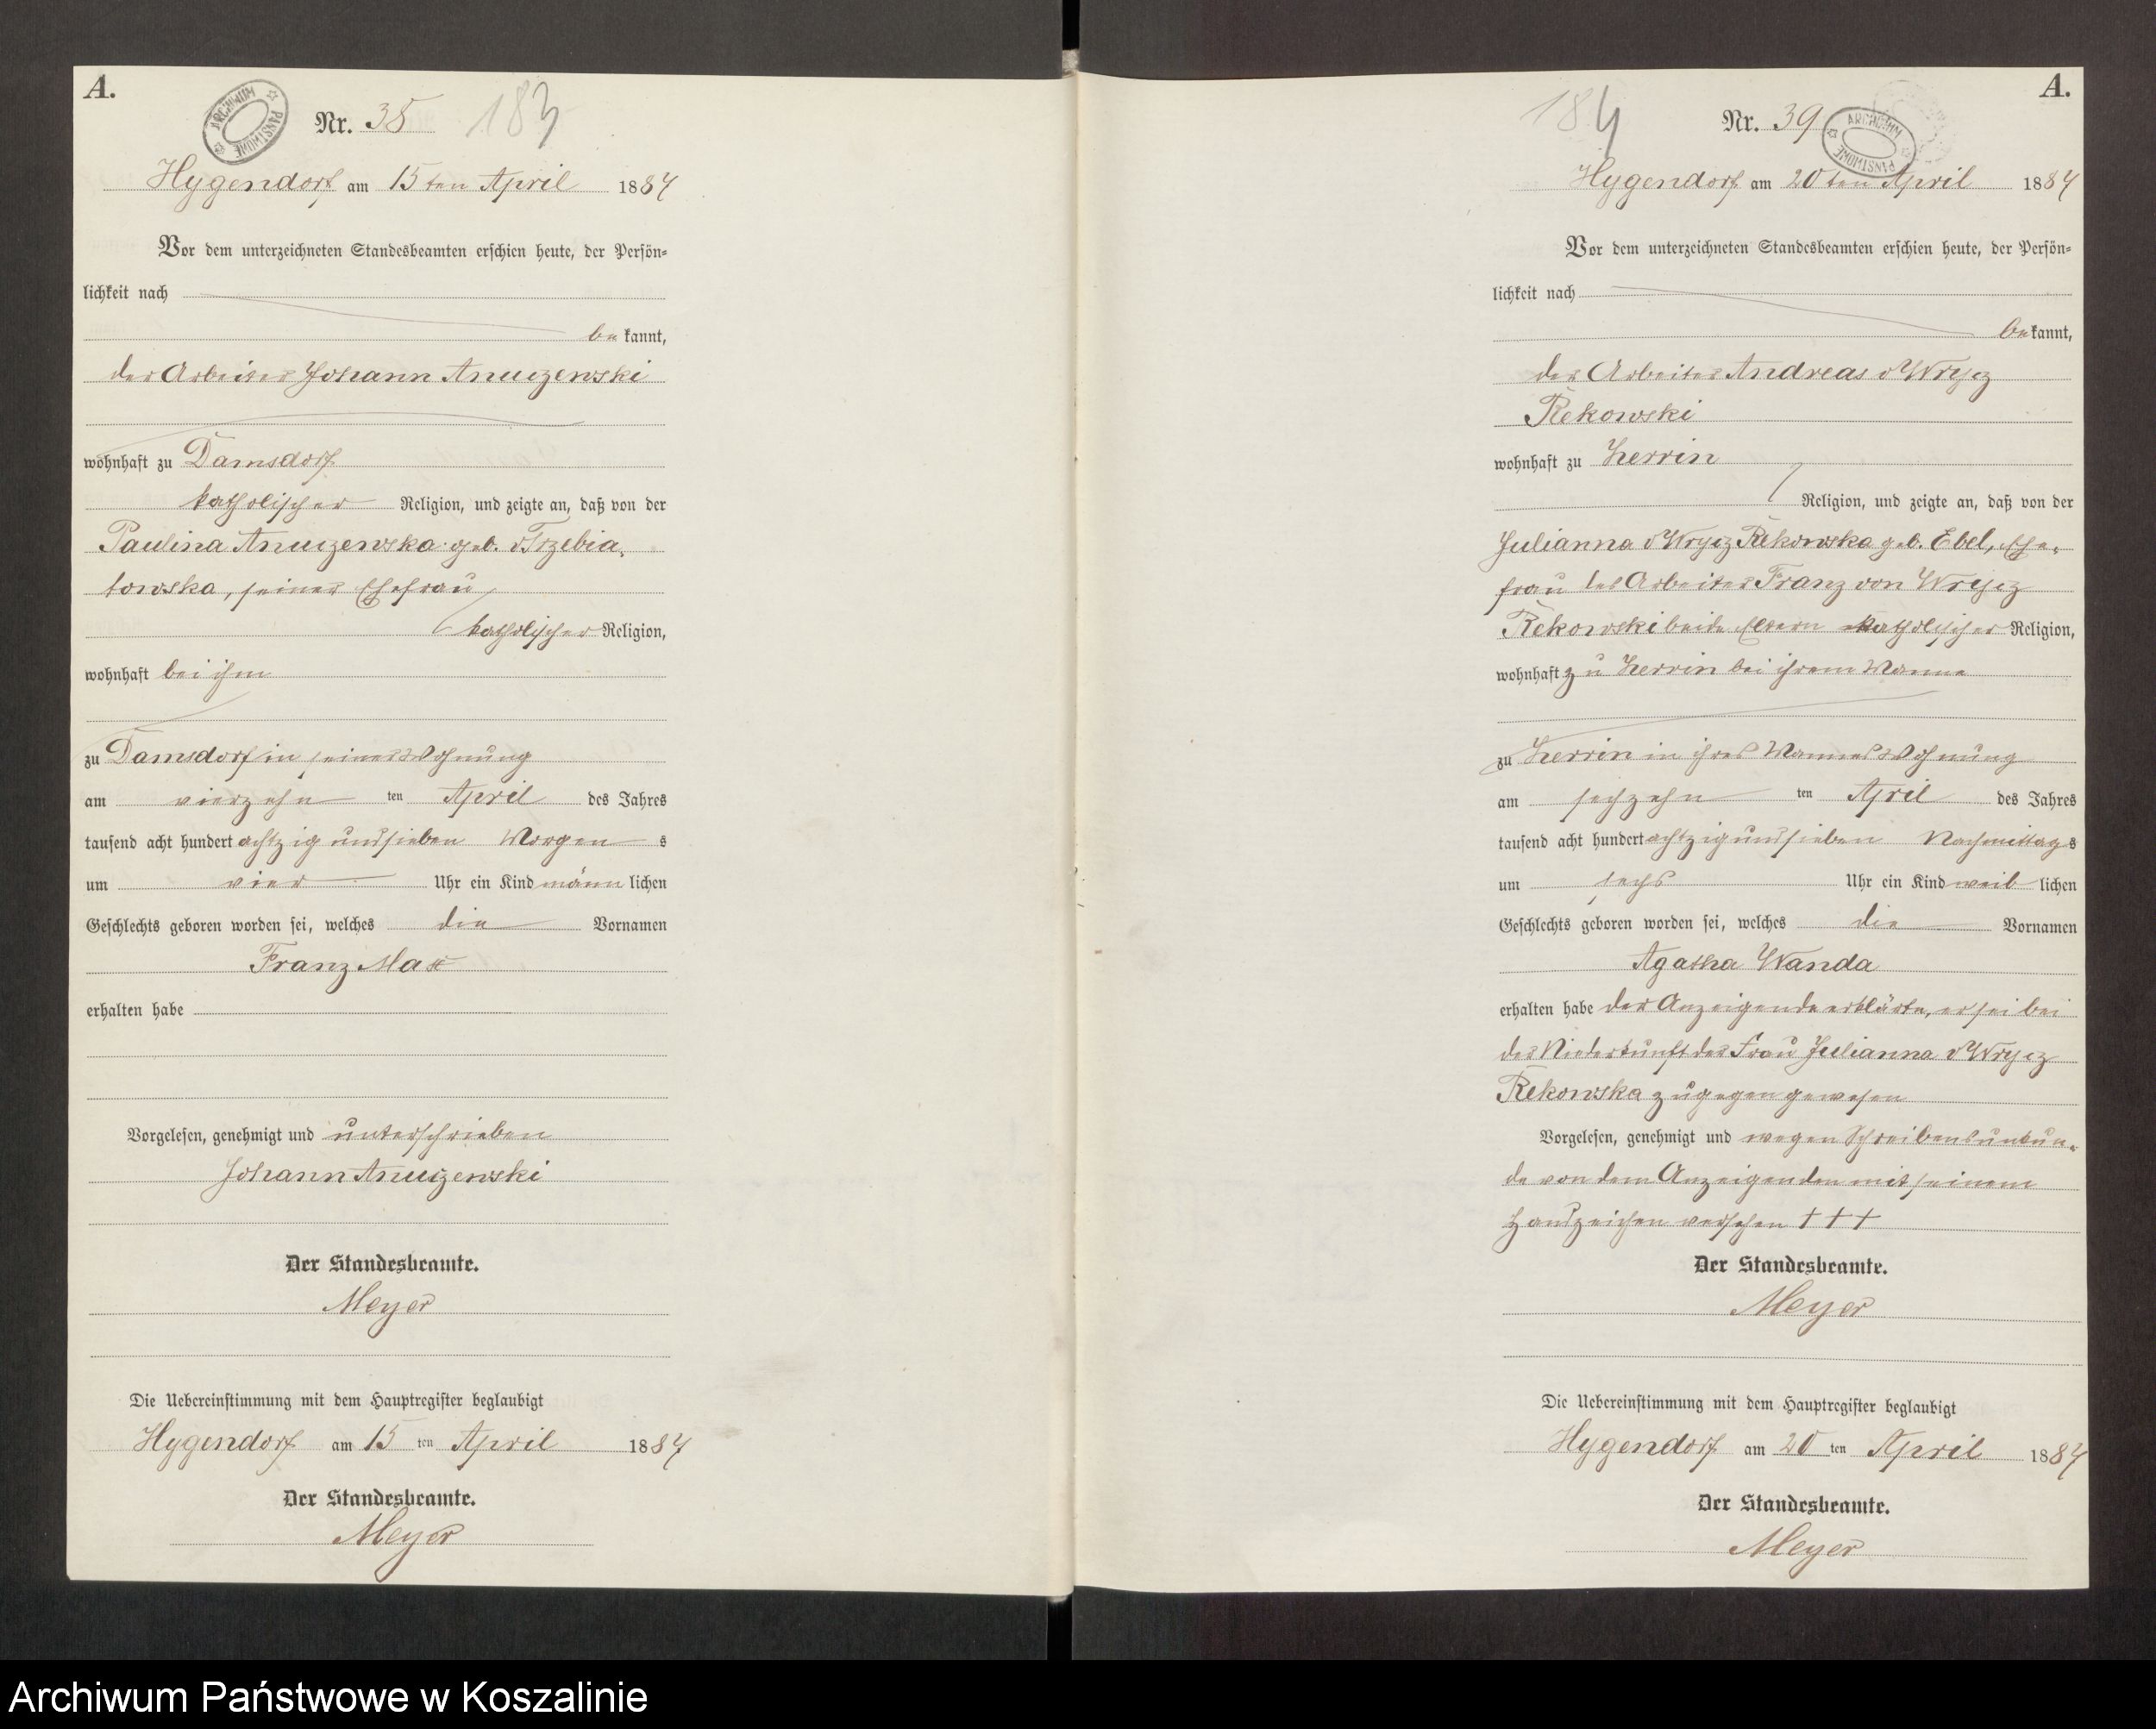 A.
ARCHIWUM PAŃSTWOWE
Nr. 38 183
Hygendorf am 15ten April 1887
Vor dem unterzeichneten Standesbeamten erschien heute, der Persön-
lichkeit nach
bekannt,
der Arbeiter Johann
wohnhaft zu Damsdorf
katholischer Religion, und zeigte an, daß von der
Paulina geb. v Trzebia-
towska, seiner Ehefrau
katholischer Religion,
wohnhaft bei ihm
zu Damsdorf in seiner Wohnung
am vierzehn ten April des Jahres
tausend acht hundert achtzig und sieben Morgens
um vier Uhr ein Kind männlichen
Geschlechts geboren worden sei, welches die Vornamen
Franz Max
erhalten habe
Vorgelesen, genehmigt und unterschrieben
Johann
Der Standesbeamte.
Meyer
Die Uebereinstimmung mit dem Hauptregister beglaubigt
Hygendorf am 15 ten April 1887
Der Standesbeamte.
Meyer
A.
184 Nr. 39
ARCHIWUM PAŃSTWOWE
Hygendorf am 20ten April 1887
Vor dem unterzeichneten Standesbeamten erschien heute, der Persön-
lichkeit nach
bekannt,
der Arbeiter Andreas v Wrycz
Rekowski
wohnhaft zu Zerrin
Religion, und zeigte an, daß von der
Julianna v Wrycz Rekowska geb. Ebel, Ehe-
frau des Arbeiter Franz von Wrycz
Rekowski beide Eltern katholischer Religion,
wohnhaft zu Zerrin bei ihrem Manne
zu Zerrin in ihres Mannes Wohnung
am sechzehn ten April des Jahres
tausend acht hundert achtzig und sieben Nachmittags
um sechs Uhr ein Kind weiblichen
Geschlechts geboren worden sei, welches die Vornamen
Agatha Wanda
erhalten habe der Anzeigende erklärte, er sei bei
der Niederkunft der Frau Julianna v Wrycz
Rekowska zugegen gewesen
Vorgelesen, genehmigt und wegen Schreibensunkun-
de von dem Anzeigenden mit seinem
Handzeichen versehen † † †
Der Standesbeamte.
Meyer
Die Uebereinstimmung mit dem Hauptregister beglaubigt
Hygendorf am 20 ten April 1887
Der Standesbeamte.
Meyer
Archiwum Państwowe w Koszalinie